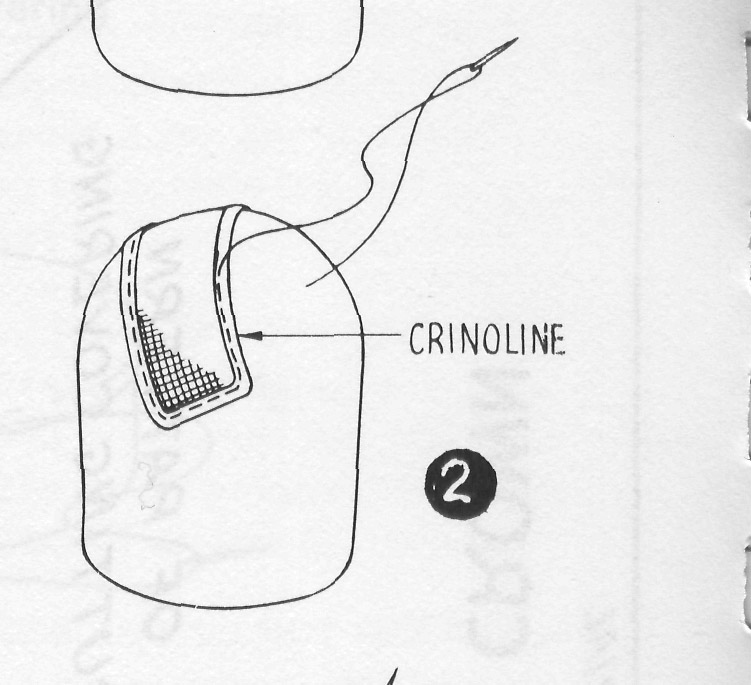 CRINOLINE
2